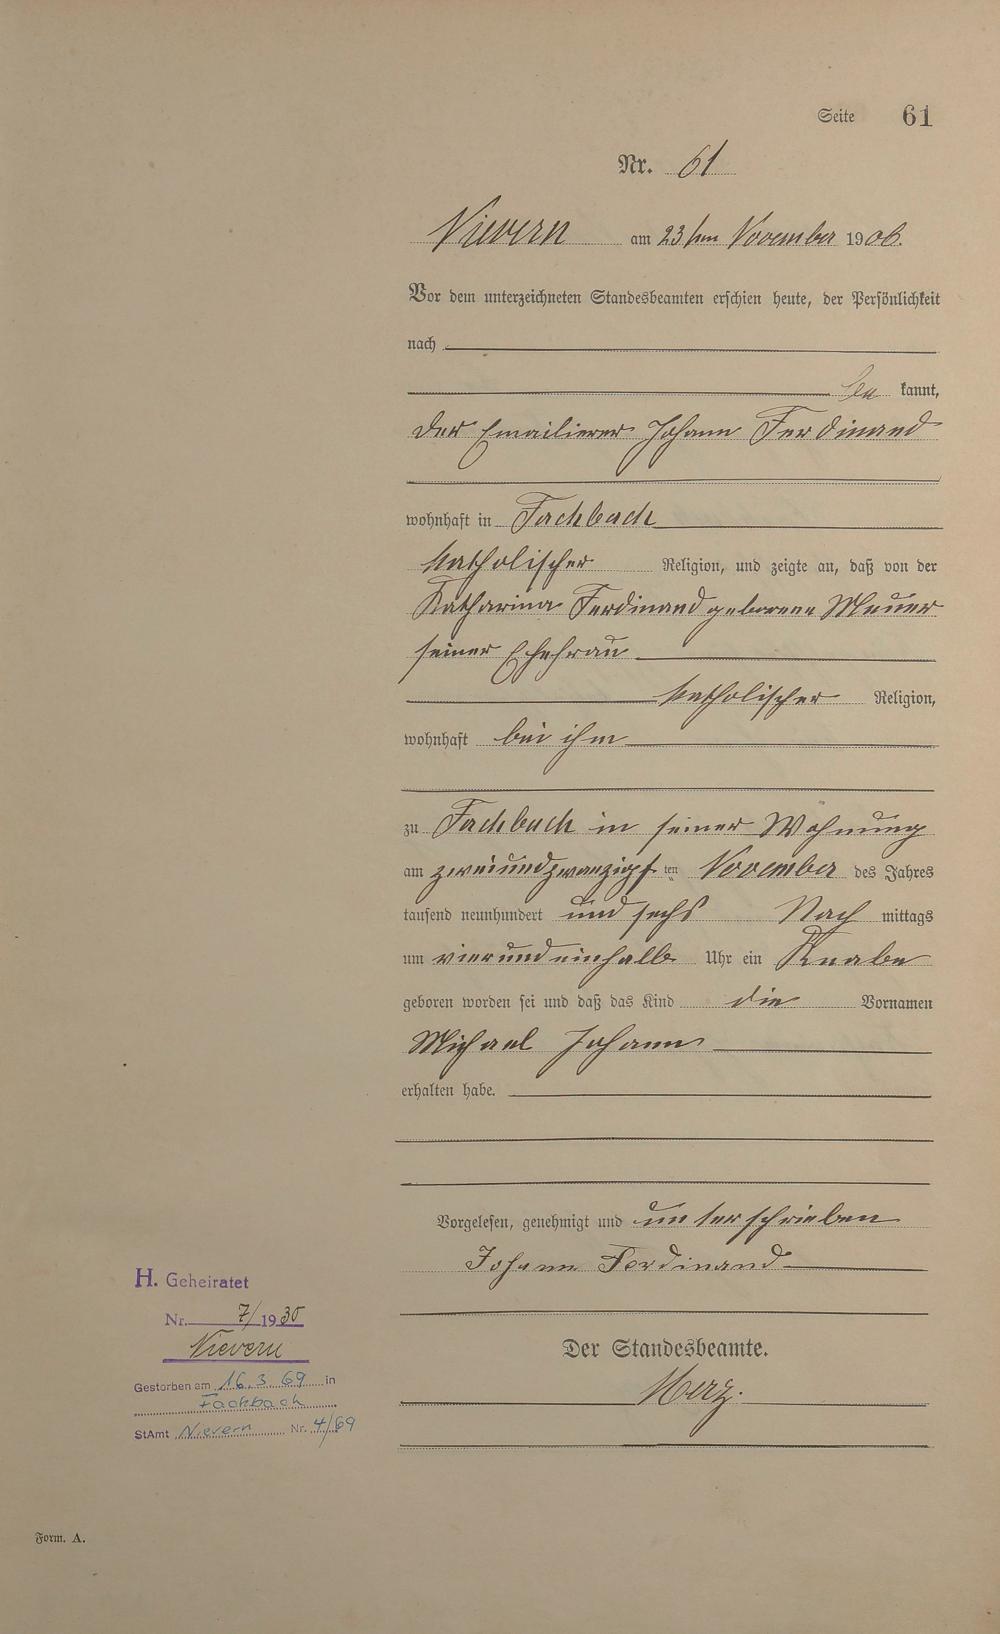 Seite 61
Nr. 61
Nievern am 23ten November 1906.
Vor dem unterzeichneten Standesbeamten erschien heute, der Persönlichkeit
nach
be kannt,
der Emailierer Johann Ferdinand
wohnhaft in Fachbach
katholischer Religion, und zeigte an, daß von der
Katharina Ferdinand geborene Meuer
seiner Ehefrau
katholischer Religion,
wohnhaft bei ihm
zu Fachbach in seiner Wohnung
am zweiundzwanzigsten November des Jahres
tausend neunhundert und sechs Nach mittags
um vierundeinhalb Uhr ein Knabe
geboren worden sei und daß das Kind die Vornamen
Michael Johann
erhalten habe.
Vorgelesen, genehmigt und unterschrieben
Johann Ferdinand
Der Standesbeamte.
Merz.
H. Geheiratet
Nr. 7/1930
Nievern
Gestorben am 16.3.69 in
Fachbach
StAmt Nievern Nr. 4/69
Form. A.